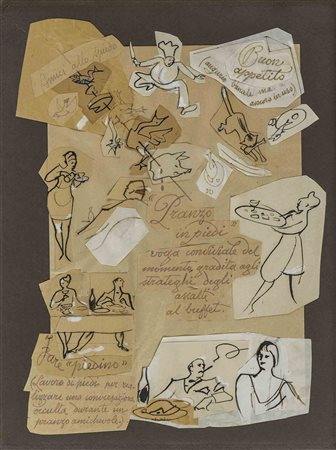 Amici allo spiedo
Buon
appetito
(augurio
banale ma
ancora in uso)
"Pranzo
in piedi"
voga conviviale del
momento, gradita agli
strateghi degli
assalti
al buffet.
Fare "piedino"
(Lavoro di piedi per rea-
lizzare una conversazione
occulta durante un
pranzo amichevole.)